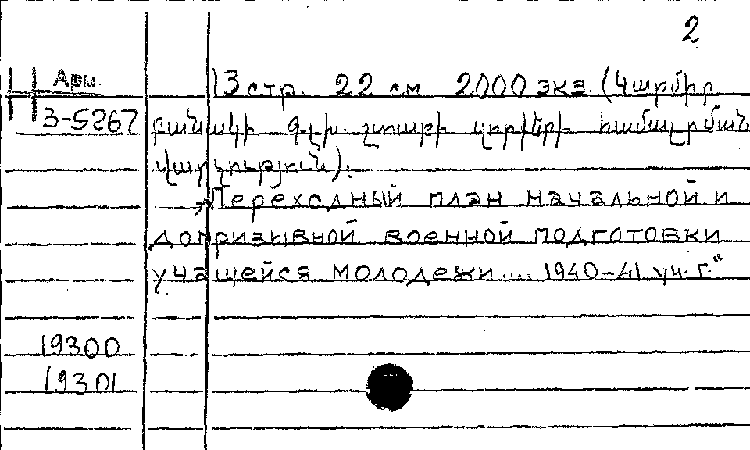 2
Арм.
3-5267
13 стр. 22 см 2000 экз. (Կարմիր
բանակի գլխ. շտաբի զորքերի համալրման
վարչություն).
„Переходный план начальной и
допризывной военной подготовки
учащейся молодежи... 1940-41 уч. г."
19300
19301